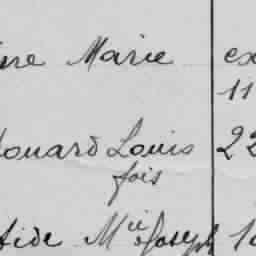 ine Marie ex
11
douard Louis 22
fois
tide M^ie Joseph 1